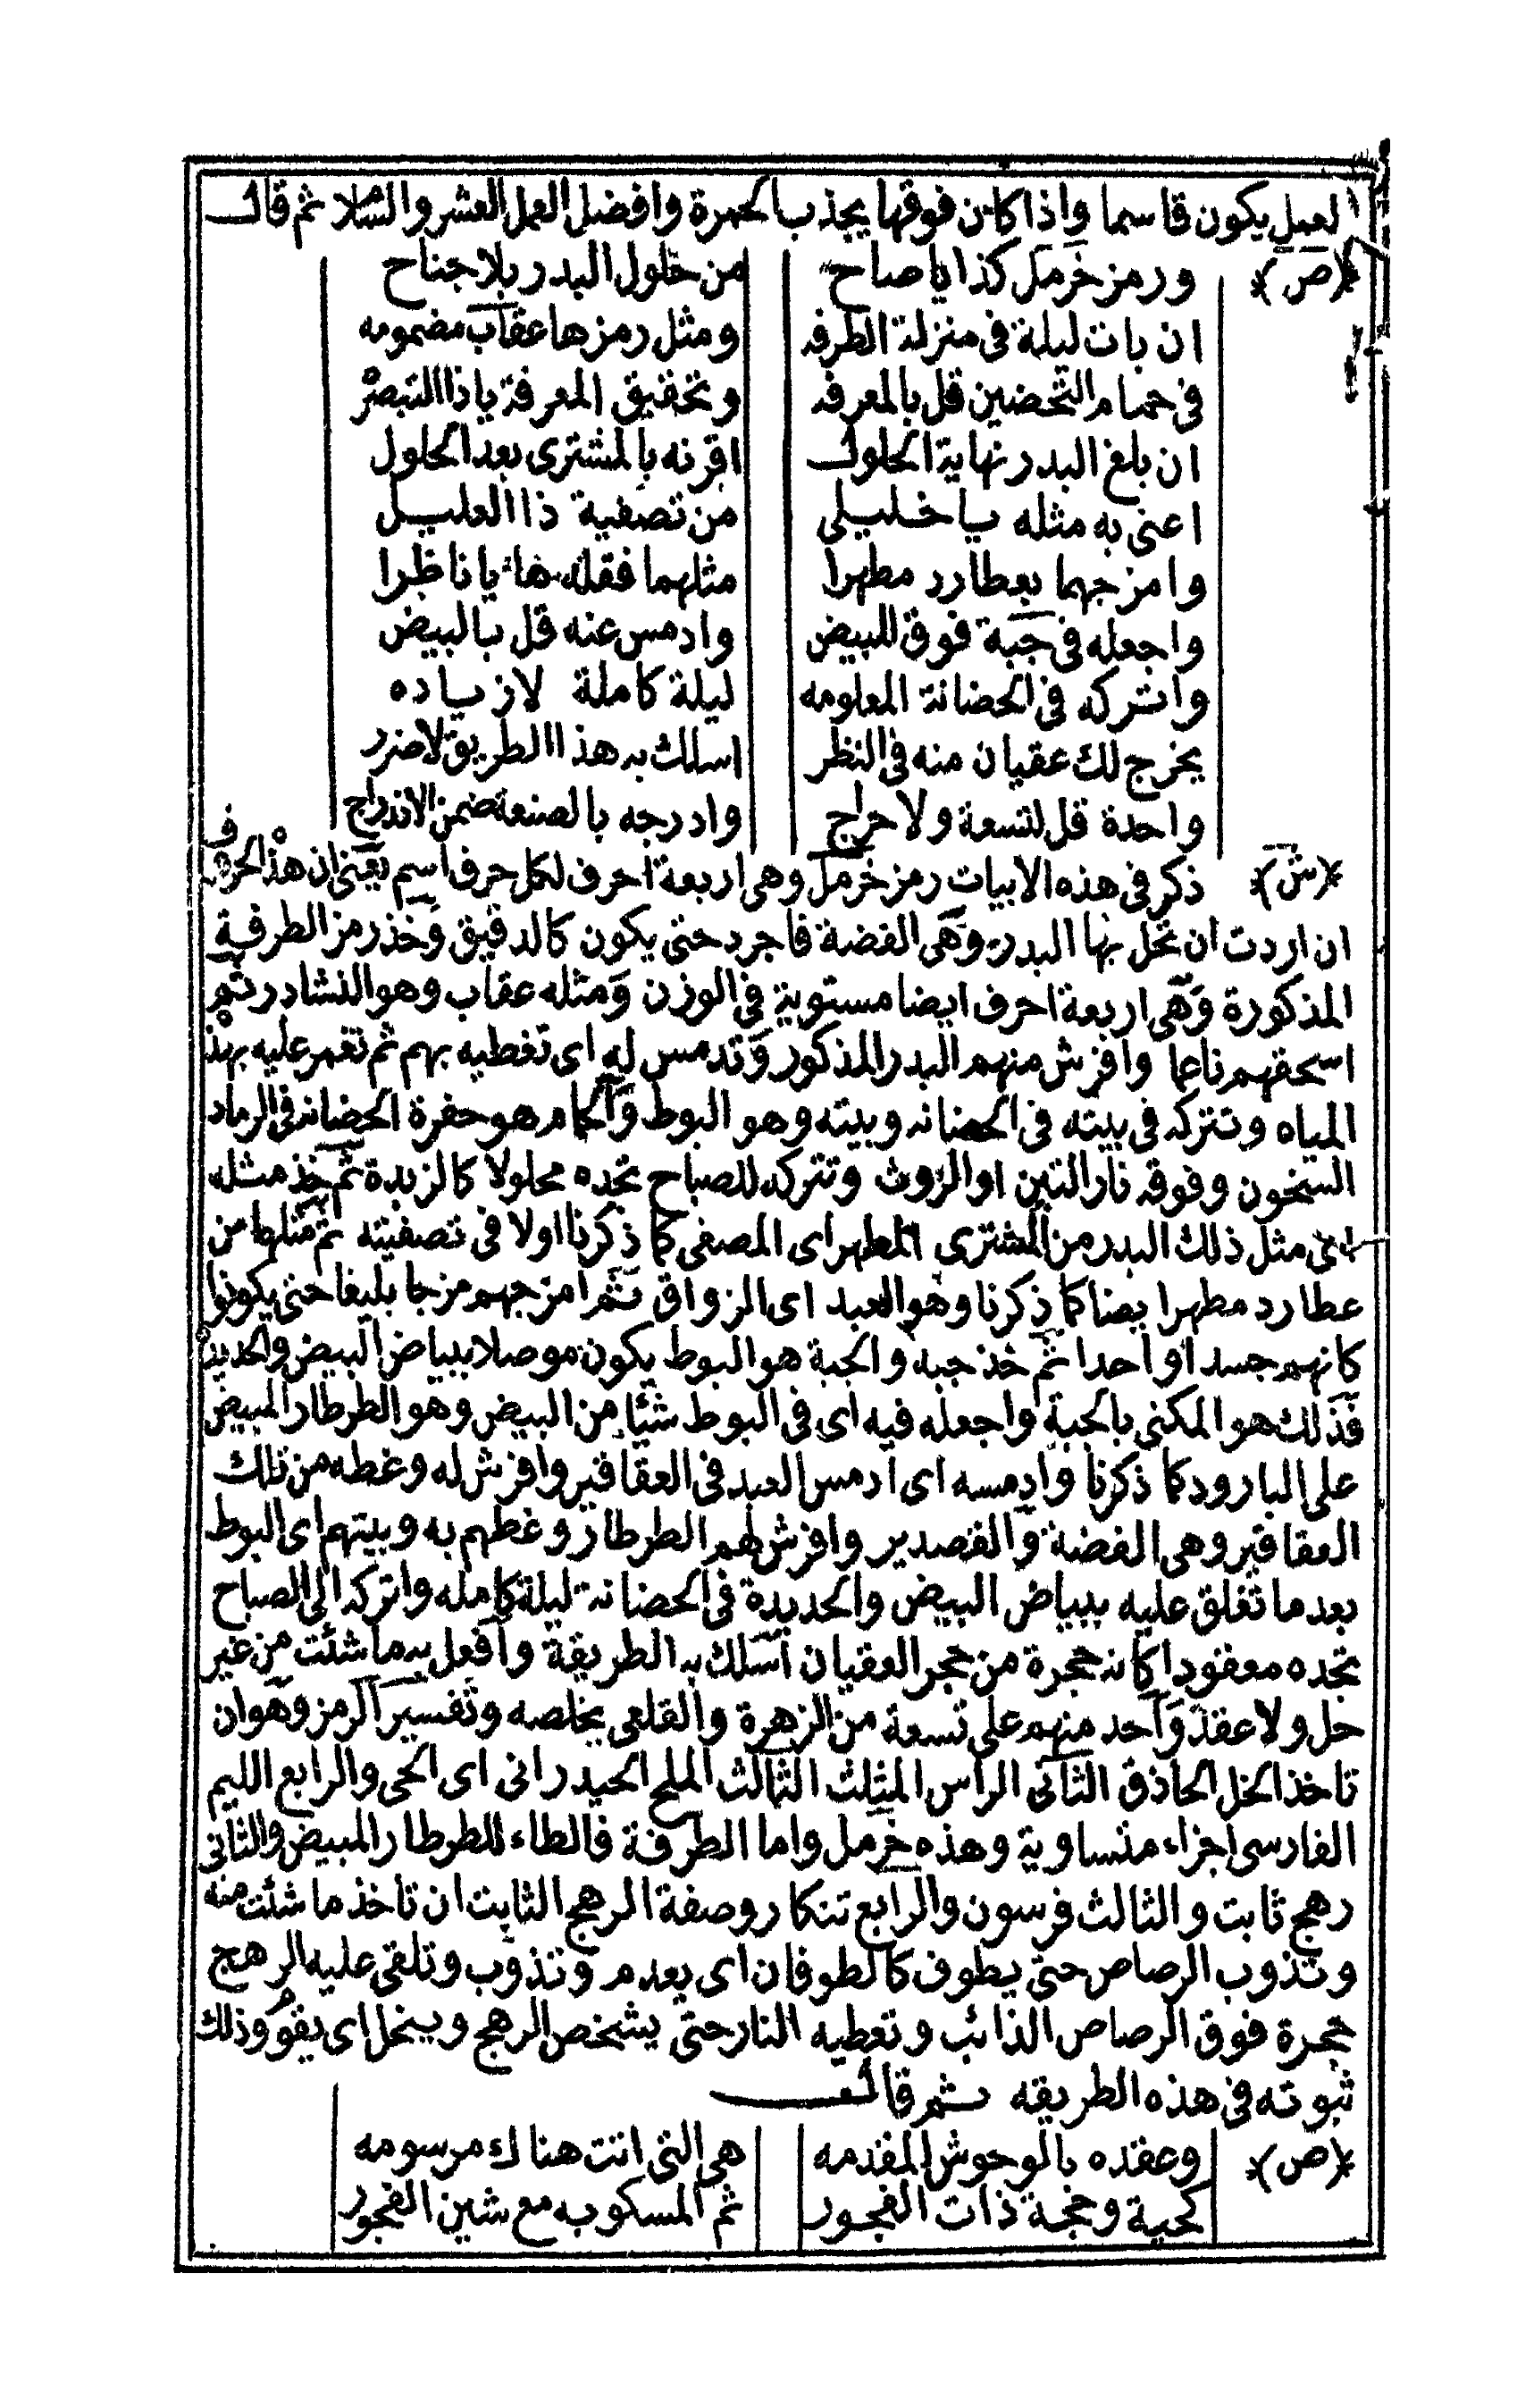 لعمل يكون قاسما واذا كان فوقها يجذب الحمرة وافضل العمل العشر والثلاث ثم قال
﴿ص﴾ ورمز خرمل كذا يا صاح من حلول البدر بلا جناح
ان بات ليلة فى منزلة الطرفه ومثل رمزها عقاب مضمومه
فى حمام التحضين قل بالمعرفه وتحقيق المعرفة ياذا التبصر
ان بلغ البدر نهاية الحلول اقرنه بالمشترى بعد الحلول
اعنى به مثله يا خليلى من تصفية ذا العليل
وامزجهما بعطارد مطهرا مثلهما فقله هاء يا ناظرا
واجعله فى جبة فوق البيض وادمس عنه قل بالبيض
واتركه فى الحضانة المعلومه ليلة كاملة لا زياده
يخرج لك عقيان منه فى النظر اسلك به هذا الطريق لا ضرر
واحدة قل لتسعة ولا حراج وادرجه بالصنعة ضمن الاندراج
﴿ش﴾ ذكر فى هذه الابيات رمز خرمل وهى اربعة احرف لكل حرف اسم يعنى ان هذ الحرف
ان اردت ان تحل بها البدر وهى الفضة فاجرد حتى يكون كالدقيق وخذ رمز الطرفية
المذكورة وهى اربعة احرف ايضا مستوية فى الوزن ومثله عقاب وهو النشادر ثم
اسحقهم ناعما وافرش منهم البدر المذكور وتدمس له اى تغطيه بهم ثم تغمر عليه بهذ
المياه وتتركه فى بيته فى الحضانه وبيته وهو البوط والحمام هو حفرة الحضانه فى الرماد
السخون وفوقه نار التبن او الروث وتتركه للصباح تجده محلولا كالزبدة ثم خذ مثله
اى مثل ذلك البدر من المشترى المطهر اى المصفى كما ذكرنا اولا فى تصفيته ثم مثلهما من
عطارد مطهرا يضا كما ذكرنا وهو العبد اى الزواق ثم امزجهم مزجا بليغا حتى يكونوا
كانهم جسد او احدا ثم خذ جبه والجبة هو البوط يكون موصلا ببياض البيض والحديد
فذلك هو المكنى بالجبة واجعله فيه اى فى البوط شيئا من البيض وهو الطرطار المبيض
على البارود كما ذكرنا وادمسه اى ادمس العبد فى العقاقير وافرش له وغطه من تلك
العقاقير وهى الفضة والقصدير وافرش لهم الطرطار وغطهم به وبيتهم اى البوط
بعد ما تغلق عليه ببياض البيض والحديدة فى الحضانة ليلة كامله واتركه الى الصباح
تجده معقودا كانه حجرة من حجر العقيان اسلك به الطريقة وافعل به ما شئت من غير
حل ولا عقد واحد منهم على تسعة من الزهرة والقلعى يخلصه وتفسير الرمز وهو ان
تاخذ الخل الحاذق الثانى الراس المثلث الثالث الملح الحيدرانى اى الحى والرابع الليم
الفارسى اجزاء متساوية وهذه خرمل واما الطرفة فالطاء للطرطار المبيض والثانى
رهج ثابت والثالث فرسون والرابع تنكار وصفة الرهج الثابت ان تاخذ ما شئت منه
وتذوب الرصاص حتى يطوف كالطوفان اى يعدم وتذوب وتلقى عليه الرهج
حجرة فوق الرصاص الذائب وتعطيه النار حتى يشخص الرهج وينحل اى يقو وذلك
ثبوته فى هذه الطريقه ثم قال
﴿ص﴾ وعقده بالوحوش المقدمه هى التى انت هناك مرسومه
كحية وخجة ذات الفجور ثم المسكوبه مع شين الفجور